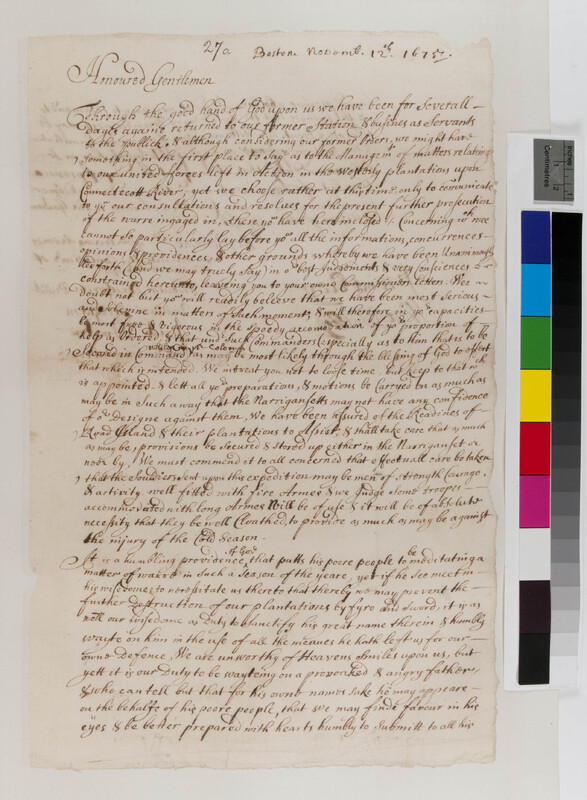 27a Boston Novemb. 12th. 1675.
Honoured Gentlemen
Through the good hand of God upon us we have been for Severall
dayes againe returned to our former Station & busines as Servants
to the publick, & although considering our former Orders, we might have
Something in the first place to Say as to the Managem.t of matters relating
to our united forces left in action in the westerly plantations upon
Connecticott River, yet we choose rather at this time only to com̄unicate
to yo.u our consultations and resolves for the present further prosecution
of the warre ingaged in, there yo.u have here inclosed. Concerning w.ch wee
cannot So particularly lay before yo.u all the informations, concurrences
opinions & providences, & other grounds whereby we have been Unanimously
led forth (and we may truely Say) in o.r best Judgements & very consciences
constrained hereunto, leaving you to your owne Commissioners letters. Wee
doubt not but yo.u will readily beleeve that we have been most Serious
and Solemne in matters of Such moment, & will therefore in yo.r capacities
be most free & vigorous in the speedy of yo.r proportion of
help as Ordered, & that und.r Such Commanders especially as to him that is to be
Second in Command as may be most likely through the blessing of God to assist
that which is intended. We intreat you not to loose time, but keep to that w.ch
is appointed & lett all yo.r preparations, & motions be Carryed on as much as
may be in Such a way that the Narrigansetts may not have any confidence
of o.r Designe against them. We have been assured of the Readines of
Road Island & their plantations to Assist, & shall take care that as much
as may be, provisions be Secured & stored up either in the Narriganset or
neer by. We must commend it to all concerned that effectuall care be taken
that the Souldiers Sent upon this expedition may be men of strength Courage
& activity, well fitted with fire Armes & we Judge Some troopes
accommodated with long Armes Will be of use & it will be of absolute
necessity that they be well Cloathed, to provide as much as may be against
the injury of the Cold Season.
It is a humbling providence of God that putts his poore people to be meditating a
matter of warre in Such a Season of the yeare, yet if he See meet in
his wisedome to necessitate us thereto that thereby we may prevent the
further Destruction of our plantations by fyre and Sword, it is as
well our wisedome as Duty to Sanctify his great name therein & humbly
wayte on him in the use of all the meanes he hath left us for our
owne Defence. We are unworthy of Heavens Smiles upon us, but
yett it is our Duty to be wayteing on a provoaked & angry father
& who can tell but that for his owne names Sake he may appeare
on the behalfe of his poore people, that we may finde favour in his
eyes & be better prepared with hearts humbly to Submitt to all his